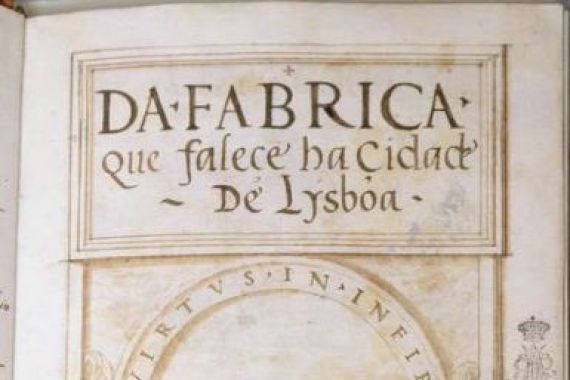 DA·FABRICA·
que falece ha Çidade
~ De Lysbòa -
VIRTVS, IN, INFIR